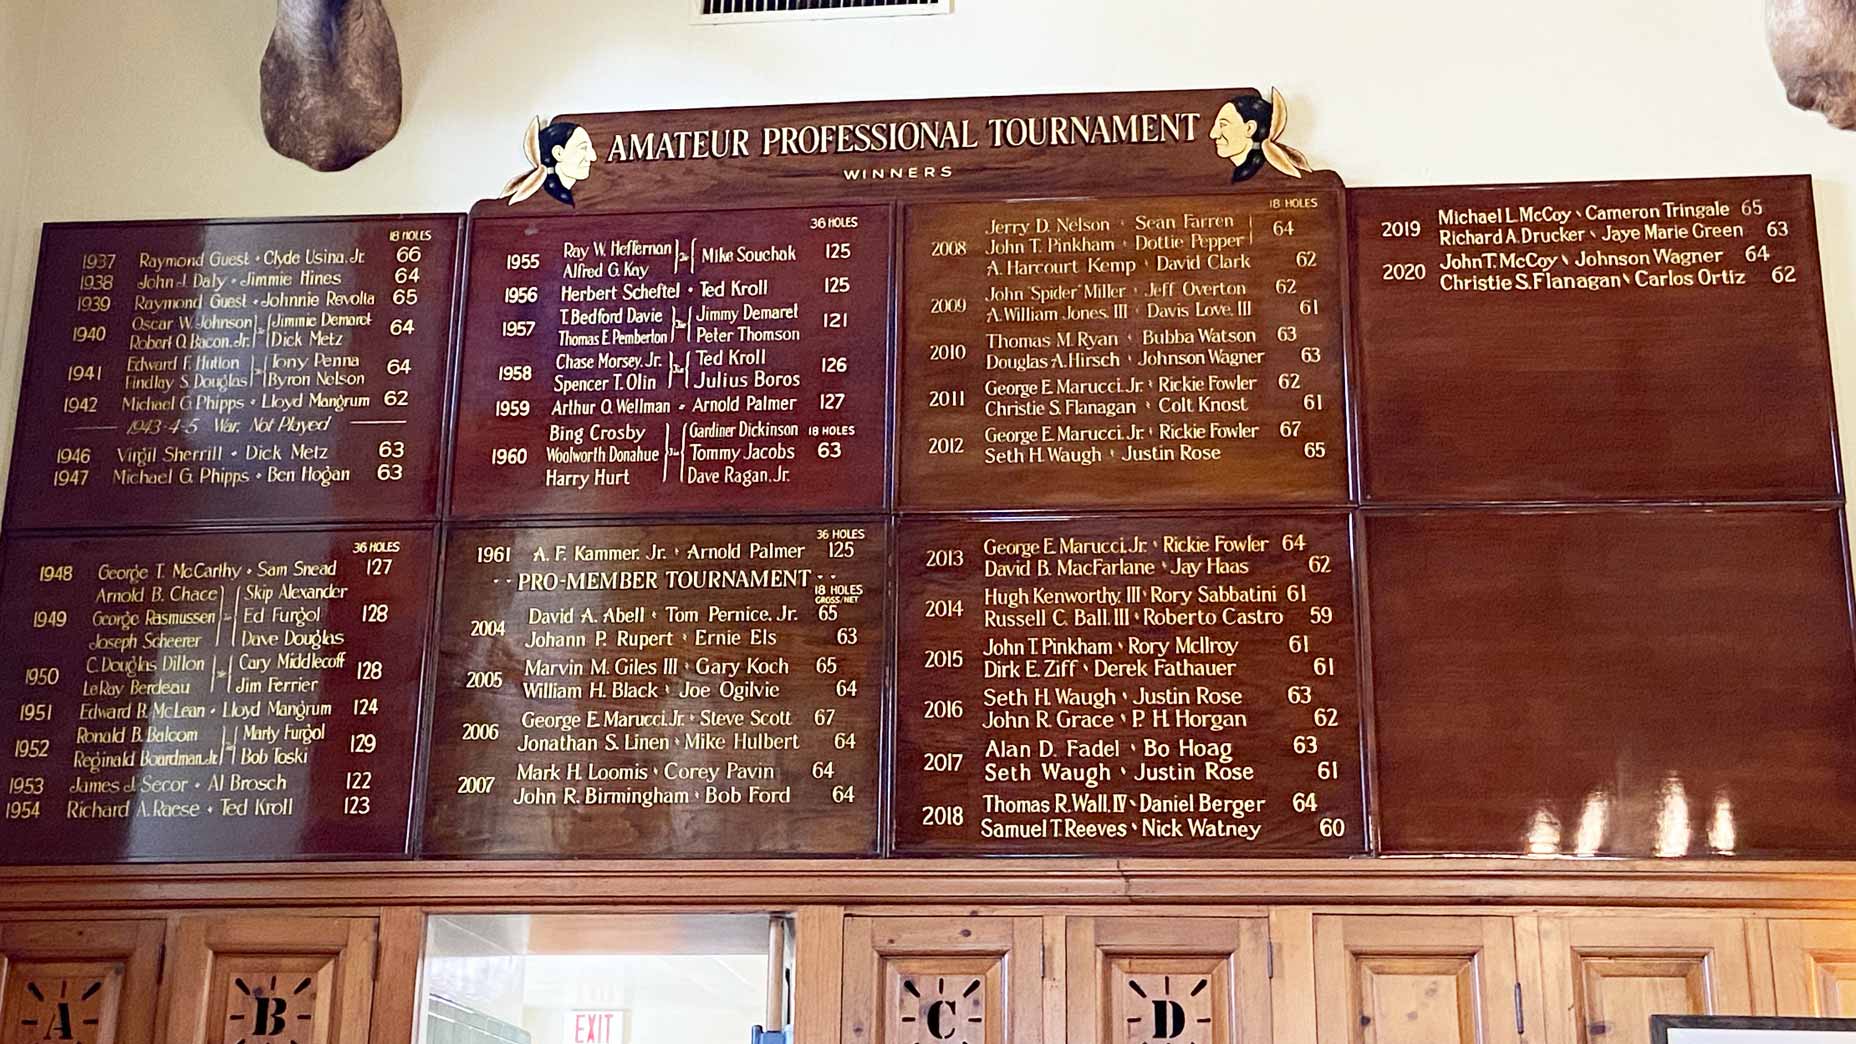 AMATEUR PROFESSIONAL TOURNAMENT
WINNERS
18 HOLES
1937 Raymond Guest • Clyde Usina, Jr. 66
1938 John J. Daly • Jimmie Hines 64
1939 Raymond Guest • Johnnie Revolta 65
1940 Oscar W. Johnson Jimmie Demaret 64
Robert O. Bacon, Jr. Dick Metz
1941 Edward F. Hutton Tony Penna 64
Findlay S. Douglas Byron Nelson
1942 Michael G. Phipps • Lloyd Mangrum 62
1943-4-5 War, Not Played
1946 Virgil Sherrill • Dick Metz 63
1947 Michael G. Phipps • Ben Hogan 63
36 HOLES
1948 George T. McCarthy • Sam Snead 127
Arnold B. Chace Skip Alexander
1949 George Rasmussen Ed Furgol 128
Joseph Scheerer Dave Douglas
1950 C. Douglas Dillon Cary Middlecoff 128
LeRay Berdeau Jim Ferrier
1951 Edward B. McLean • Lloyd Mangrum 124
1952 Ronald B. Balcom Marty Furgol 129
Reginald Boardman, Jr. Bob Toski
1953 James J. Secor • Al Brosch 122
1954 Richard A. Raese • Ted Kroll 123
36 HOLES
1955 Ray W. Heffernan Mike Souchak 125
Alfred G. Kay
1956 Herbert Scheftel • Ted Kroll 125
1957 T. Bedford Davie Jimmy Demaret 121
Thomas E. Pemberton Peter Thomson
1958 Chase Morsey, Jr. Ted Kroll 126
Spencer T. Olin Julius Boros
1959 Arthur O. Wellman • Arnold Palmer 127
Bing Crosby Gardiner Dickinson 18 HOLES
1960 Woolworth Donahue Tommy Jacobs 63
Harry Hurt Dave Ragan, Jr.
36 HOLES
1961 A. F. Kammer, Jr. • Arnold Palmer 125
PRO-MEMBER TOURNAMENT
18 HOLES
GROSS/NET
2004 David A. Abell • Tom Pernice, Jr. 65
Johann P. Rupert • Ernie Els 63
2005 Marvin M. Giles III • Gary Koch 65
William H. Black • Joe Ogilvie 64
2006 George E. Marucci, Jr. • Steve Scott 67
Jonathan S. Linen • Mike Hulbert 64
2007 Mark H. Loomis • Corey Pavin 64
John R. Birmingham • Bob Ford 64
18 HOLES
Jerry D. Nelson • Sean Farren 64
2008 John T. Pinkham • Dottie Pepper
A. Harcourt Kemp • David Clark 62
2009 John "Spider" Miller • Jeff Overton 62
A. William Jones, III • Davis Love, III 61
2010 Thomas M. Ryan • Bubba Watson 63
Douglas A. Hirsch • Johnson Wagner 63
2011 George E. Marucci, Jr. • Rickie Fowler 62
Christie S. Flanagan • Colt Knost 61
2012 George E. Marucci, Jr. • Rickie Fowler 67
Seth H. Waugh • Justin Rose 65
2013 George E. Marucci, Jr. • Rickie Fowler 64
David B. MacFarlane • Jay Haas 62
2014 Hugh Kenworthy, III • Rory Sabbatini 61
Russell C. Ball, III • Roberto Castro 59
2015 John T. Pinkham • Rory McIlroy 61
Dirk E. Ziff • Derek Fathauer 61
2016 Seth H. Waugh • Justin Rose 63
John R. Grace • P. H. Horgan 62
2017 Alan D. Fadel • Bo Hoag 63
Seth Waugh • Justin Rose 61
2018 Thomas R. Wall, IV • Daniel Berger 64
Samuel T. Reeves • Nick Watney 60
2019 Michael L. McCoy • Cameron Tringale 65
Richard A. Drucker • Jaye Marie Green 63
2020 John T. McCoy • Johnson Wagner 64
Christie S. Flanagan • Carlos Ortiz 62
A
B
C
D
EXIT